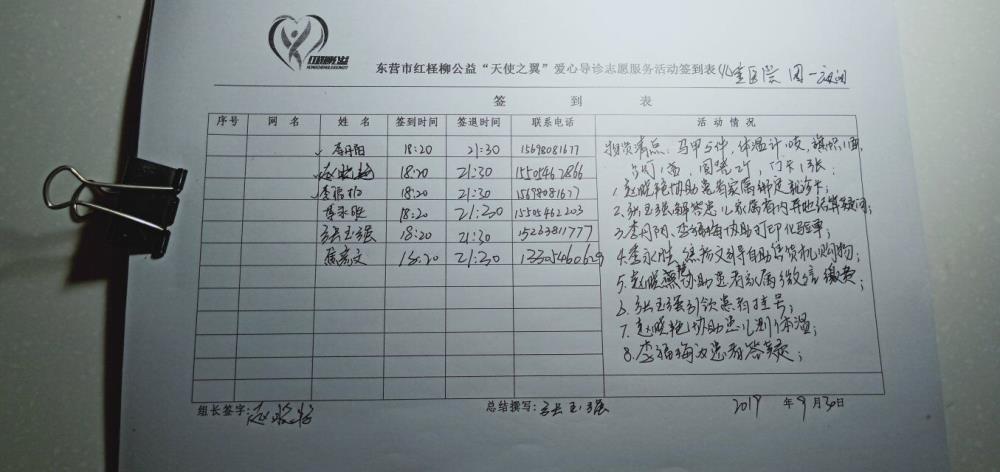 东营市红柽柳公益“天使之翼”爱心导诊志愿服务活动签到表(儿童医院 周一夜间
签 到 表
序号 网 名 姓 名 签到时间 签退时间 联系电话 活 动 情 况
李丹阳 18:20 21:30 15698081677
赵晓艳 18:20 21:30 15505467866
李福梅 18:20 21:30 15698081677
李永胜 18:20 21:30 15505462203
张玉强 18:20 21:30 15263811777
18:20 21:30 13305460629
物资清点:马甲5件,体温计10支,旗帜1面,
1.赵晓艳协助患者家属绑定就诊卡;
2.张玉强解答患儿家属省内异地结算疑问;
3.李丹阳、李福梅协助打印化验单;
4.李永胜、文引导自助售货机购物;
5.赵晓艳帮协助患者家属微信缴费;
6.张玉强引领患者挂号;
7.赵晓艳协助患儿测体温;
8.李福梅为患者答疑;
组长签字:赵晓艳 总结撰写:张玉强 2019 年 9 月30日